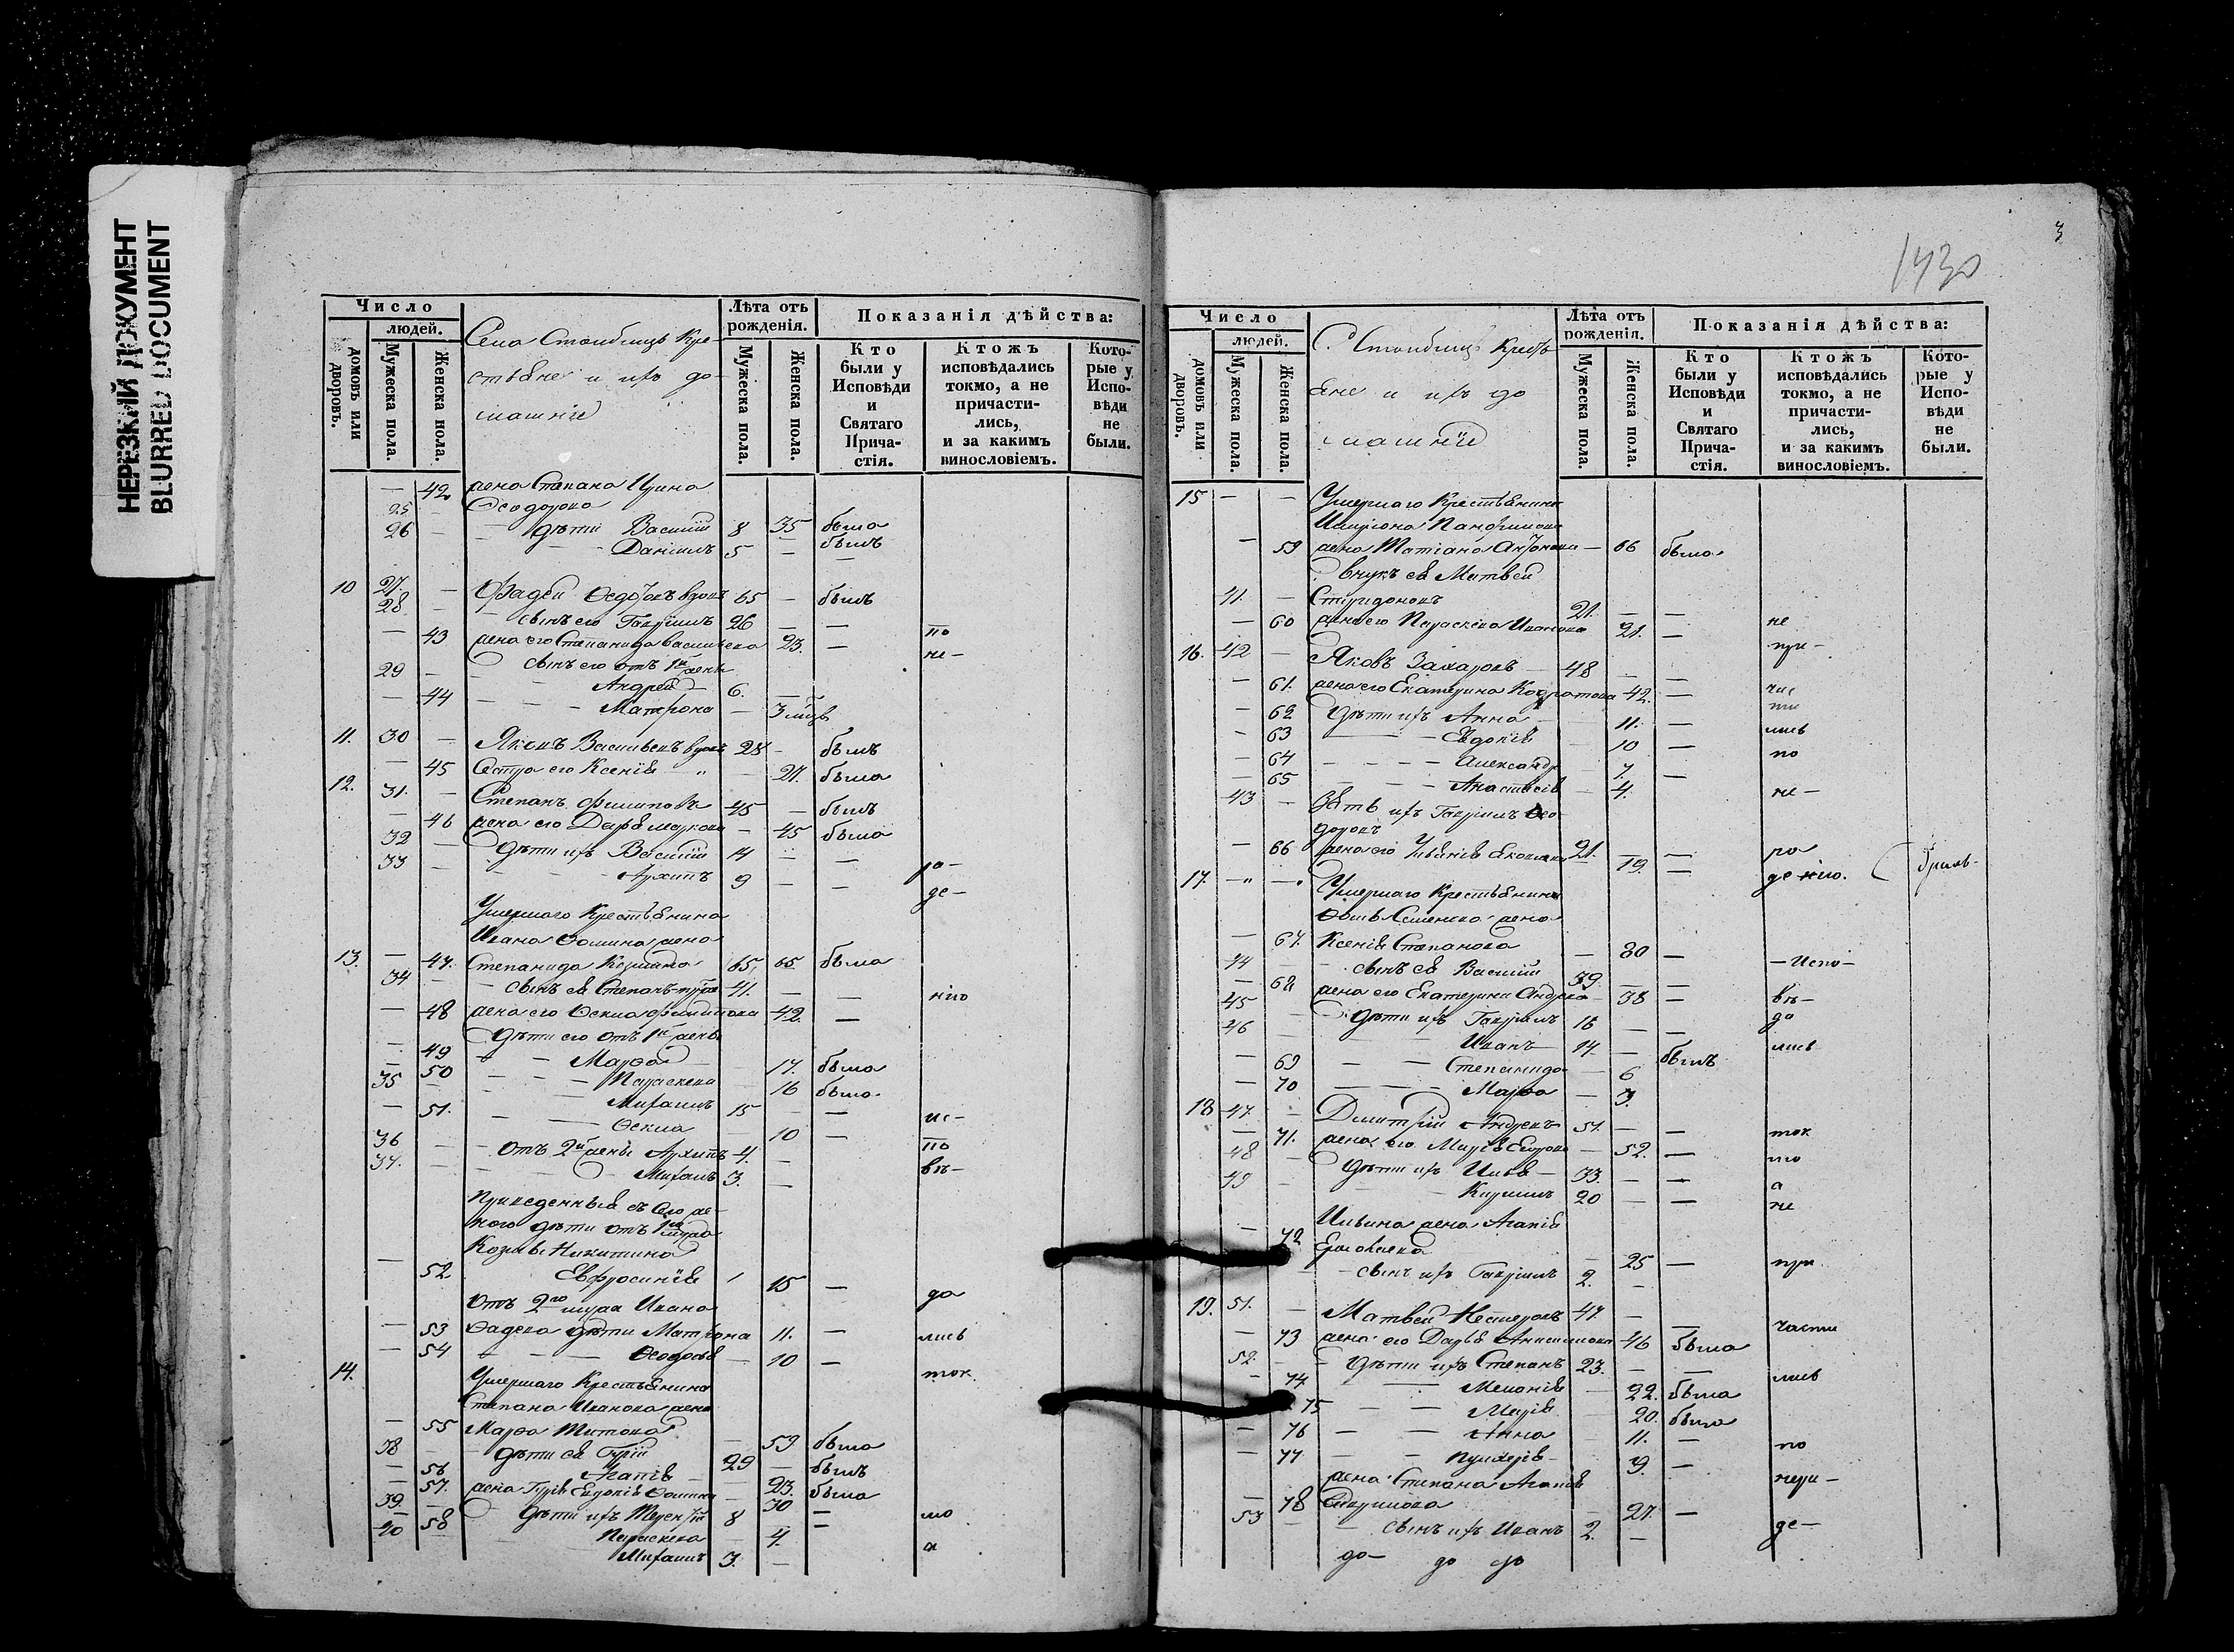 НЕРЕЗКИЙ ДОКУМЕНТ
BLURRED DOCUMENT
Число
людей.
домовъ или дворовъ.
Мужеска пола.
Женска пола.
Села Стоибищъ Кре-
стьяне и ихъ до-
машнiе
Лѣта отъ рожденія.
Мужеска пола.
Женска пола.
Показанія дѣйства:
Кто были у Исповѣди и Святаго Прича-стія.
Ктожъ исповѣдались токмо, а не причасти-лись, и за какимъ винословіемъ.
Кото-рые у Испо-вѣди не были.
42 жена Степана Ирина
Ѳеодорова 35 была
25 дѣти Василій 8 былъ
26 Даніилъ 5 —
10 27. — Фадей Ѳедоровъ вдовъ 65 — былъ
28 — сынъ его Гавріилъ 26 — —
— 43 жена его Степанида Васильева 23. — по
29 — сынъ его отъ 1й жены не-
Андрей 6. —
— 44 Матрона — 3 мѣсц
11. 30 — Яковъ Васильевъ вдовъ 28 — былъ
— 45 Сестра его Ксенія — 27. была
12. 31. — Степанъ Филиповъ 45 — былъ
— 46 жена его Дарья Маркова — 45 была
32 — дѣти ихъ Василій 14 — —
33 — Архипъ 9 — — ра-
де-
Умершаго Крестьянина
Ивана Ѳомина жена
13. — 47. Степанида Козмина 65 65 была
34 — сынъ ея Степанъ 41. — — нію
— 48 жена его Ѳекла Филипова 42. —
Дѣти его отъ 1й жены
— 49 Марѳа 17. была
— 50 Параскева 16 была
35 — Михаилъ 15 — —
— 51. Ѳекла 10 — ис-
36 — отъ 2й жены Архипъ 4. — по
37. — Михаилъ 3. — вѣ-
Приведенныя съ его же-
ною дѣти отъ 1го мужа
Козмы Никитина
— 52 Евфросинія 15 — да
отъ 2го мужа Ивана
— 53 Ѳадеева дѣти Матрона 11. — лись
— 54 Ѳеодосья 10 —
14. Умершаго Крестьянина ток
Степана Иванова жена
— 55 Марѳа Титова — 59 была
38 — дѣти ея Гурій 29 — былъ
— 56 Агапія — 23. была
— 57. жена Гурія Евдокія Ѳомина — 30 —
39. — дѣти ихъ Терентій 8 — мо
— 58 Параскева 4.
40 — Михаилъ 3. — а
3
1430
Число
людей.
домовъ или дворовъ.
Мужеска пола.
Женска пола.
С. Стоибищъ Кресть
яне и ихъ до
машнiе
Лѣта отъ рожденія.
Мужеска пола.
Женска пола.
Показанія дѣйства:
Кто были у Исповѣди и Святаго Прича-стія.
Ктожъ исповѣдались токмо, а не причасти-лись, и за какимъ винословіемъ.
Кото-рые у Испо-вѣди не были.
15 — — Умершаго Крестьянина
— 59 жена Татіана Антонова — 66 была
внукъ ея Матвей
41. — Спиридоновъ 21. — —
— 60 жена его Параскева Иванова 21. — не
16. 42 — Яковъ Захаровъ 48 — — при-
— 61. жена его Екатерина Кодратова 42. — час
— 62 дѣти ихъ Анна 11. — ти
— 63 Евдокія 10 — лись
— 64 Александра 7. — по
— 65 Анастасія 4. не-
43 — Зять ихъ Гавріилъ Ѳео-
доровъ 21. — — ра
— 66 жена его Ульянія Яковлева 19. — денію.
17. — — Умершаго Крестьянина
Ѳомы Семенова жена
— 67. Ксенія Степанова — 80 — -Испо-
44 — сынъ ея Василій 39. — —
— 68 жена его Екатерина Андреева 38 — вѣ-
45 — дѣти ихъ Гавріилъ 16 — — да
46 — Иванъ 14. — былъ лись
— 69 Степанида — 6
— 70 Марѳа — 3.
18 47. — Дмитрій Андреевъ 51. — — ток
— 71. жена его Марія Егорова — 52. — мо
48 — дѣти ихъ Илья 33. — — а
49 — Кирилъ 20 — — не
Ильина жена Агапія
— 72 — 25 — при
— сынъ ихъ Гавріилъ 2. —
19. 51. — Матвей Нестеровъ 47. — — части
— 73 жена его Дарья Анисимова 46 была
52. — дѣти ихъ Степанъ 23. — — лись
— 74 Меланія 22. была
— 75 Марія 20. была
— 76 Анна 11. — по
— 77. Пулхерія 9. — нера-
жена Степана Агапія
— 78 Гаврилова — 21. — де-
53 — сынъ ихъ Иванъ 2. —
до- до до